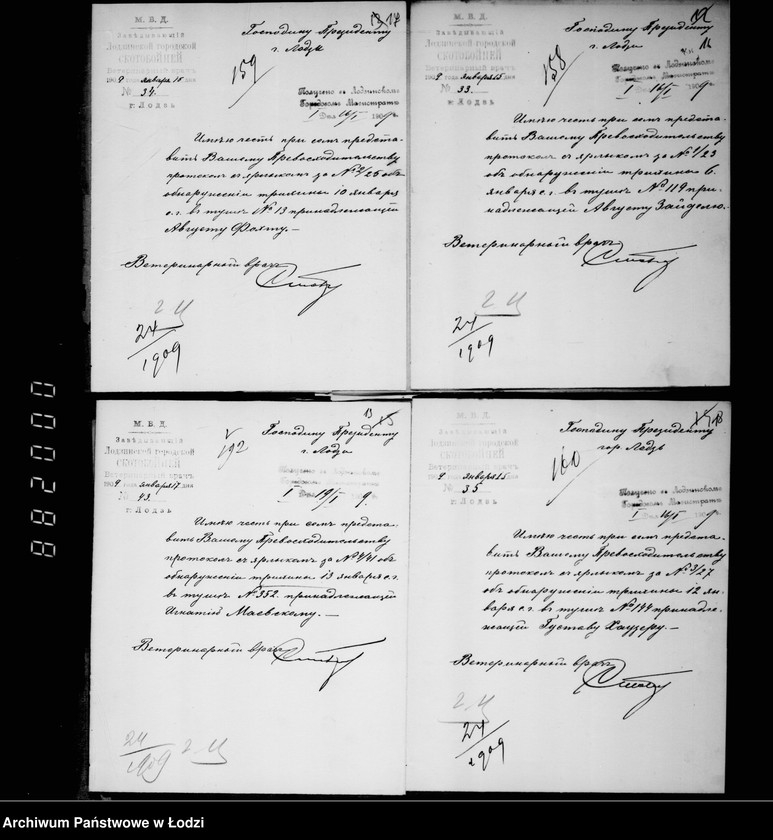 М. В. Д.
Завѣдывающій
Лодзинской городской
СКОТОБОЙНЕЙ
Ветеринарный врачъ
1909 года января 15 дня
№ 34.
г. Лодзь
17
Господину Президенту
г. Лодзи
159
Получено въ Лодзинскомъ
Городскомъ Магистратѣ
I Дня 16/I 1909 г.
Имѣю честь при семъ предста-
вить Вашему Превосходительству
протоколъ съ ярлыкомъ за № 2/25 объ
обнаруженіи трихины 10 января
с.г. въ тушѣ № 13 принадлежащей
Августу Фохту.—
Ветеринарный врачъ
24
1909
М. В. Д.
Завѣдывающій
Лодзинской городской
СКОТОБОЙНЕЙ
Ветеринарный врачъ
1909 года января 15 дня
№ 33.
г. Лодзь
16
Господину Президенту
г. Лодзи
158
Получено въ Лодзинскомъ
Городскомъ Магистратѣ
I Дня 16/I 1909 г.
Имѣю честь при семъ предста-
вить Вашему Превосходительству
протоколъ съ ярлыкомъ за № 1/23
объ обнаруженіи трихины 6
января с.г. въ тушѣ № 119 при-
надлежащей Августу Зайделю.—
Ветеринарный врачъ
24
1909
М. В. Д.
Завѣдывающій
Лодзинской городской
СКОТОБОЙНЕЙ
Ветеринарный врачъ
1909 года января 17 дня
№ 43.
г. Лодзь
13 15
Господину Президенту
г. Лодзи
192
I 19/I 9.
Имѣю честь при семъ предста-
вить Вашему Превосходительству
протоколъ съ ярлыкомъ за № 4/41 объ
обнаруженіи трихины 13 января с.г.
въ тушѣ № 352 принадлежащей
Игнатію Маевскому.—
Ветеринарный врачъ
24
1909
М. В. Д.
Завѣдывающій
Лодзинской городской
СКОТОБОЙНЕЙ
Ветеринарный врачъ
1909 года января 15 дня
№ 35
г. Лодзь
18
Господину Президенту
гор. Лодзь
160
Получено въ Лодзинскомъ
Городскомъ Магистратѣ
I Дня 16/I 1909 г.
Имѣю честь при семъ предста-
вить Вашему Превосходительству
протоколъ съ ярлыкомъ за № 3/27
объ обнаруженіи трихины 12 ян-
варя с.г. въ тушѣ № 144 принадле-
жащей Густаву Хаузеру.—
Ветеринарный врачъ
24
1909
000288
Archiwum Państwowe w Łodzi